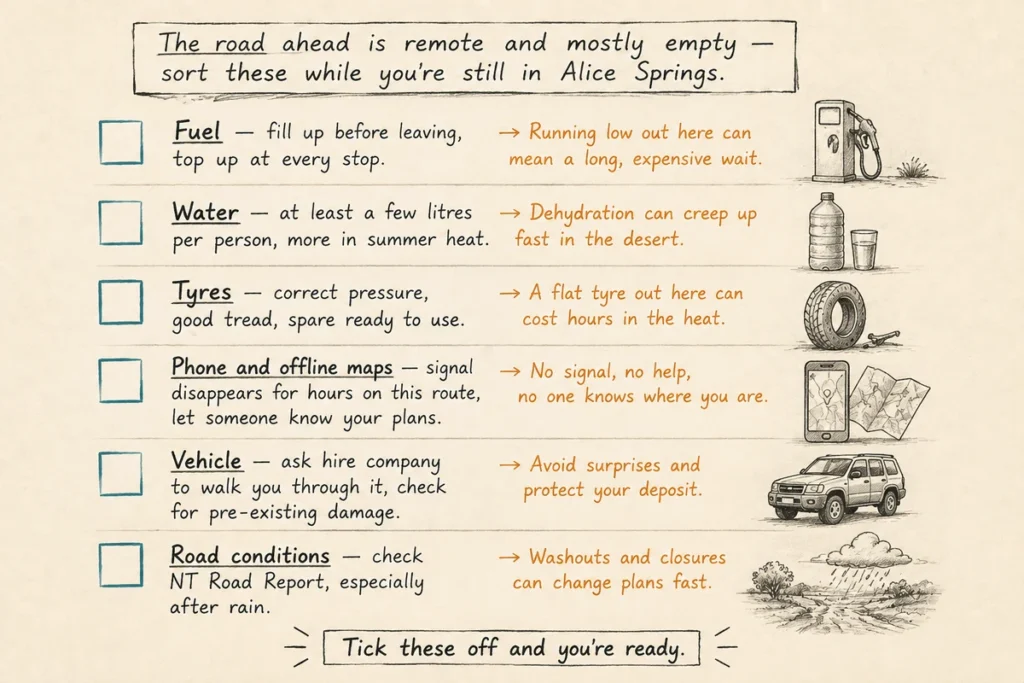 The road ahead is remote and mostly empty —
sort these while you're still in Alice Springs.
Fuel — fill up before leaving,
top up at every stop.
→ Running low out here can
mean a long, expensive wait.
Water — at least a few litres
per person, more in summer heat.
→ Dehydration can creep up
fast in the desert.
Tyres — correct pressure,
good tread, spare ready to use.
→ A flat tyre out here can
cost hours in the heat.
Phone and offline maps — signal
disappears for hours on this route,
let someone know your plans.
→ No signal, no help,
no one knows where you are.
Vehicle — ask hire company
to walk you through it, check
for pre-existing damage.
→ Avoid surprises and
protect your deposit.
Road conditions — check
NT Road Report, especially
after rain.
→ Washouts and closures
can change plans fast.
Tick these off and you're ready.